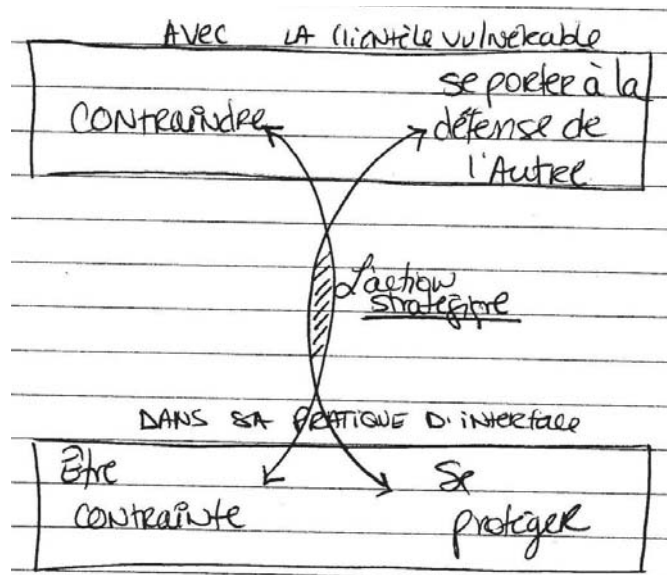 AVEC LA CLIENTÈLE VULNÉRABLE
CONTRAINDRE
se porter à la
défense de
l'Autre
L'action
stratégique
DANS SA PRATIQUE D'INTERFACE
Être
CONTRAINTE
Se
protéger